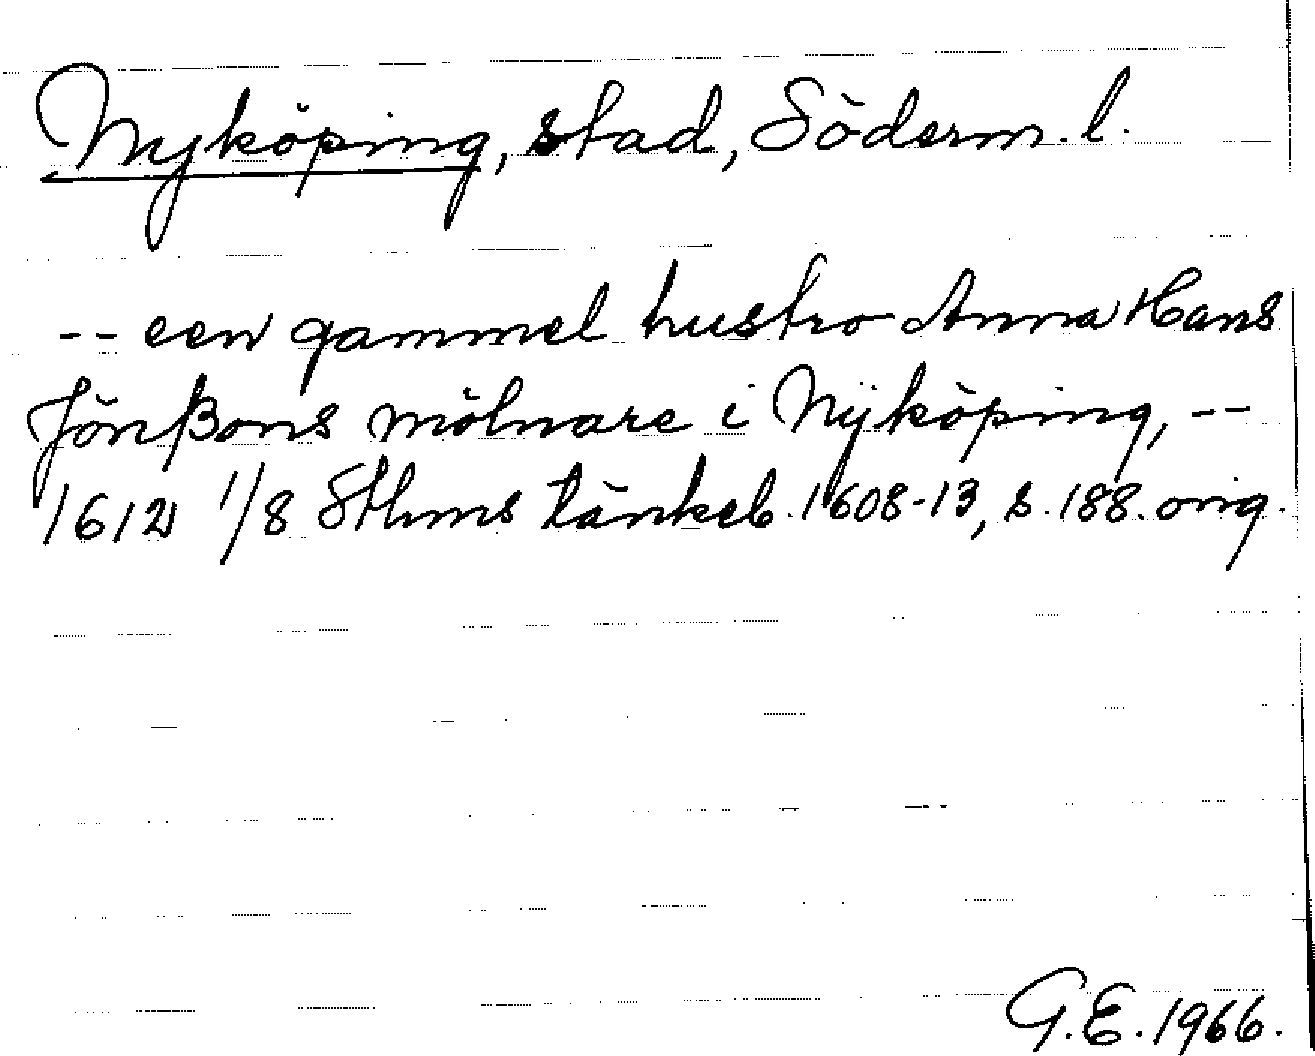 Nyköping, stad, Söderm. l.
-- een gammel hustro Anna Hans
Jönßons mölnare i Nÿköping, --
1612 1/8 Sthms tänkeb. 1608-13, s. 188. orig.
G.E. 1966.